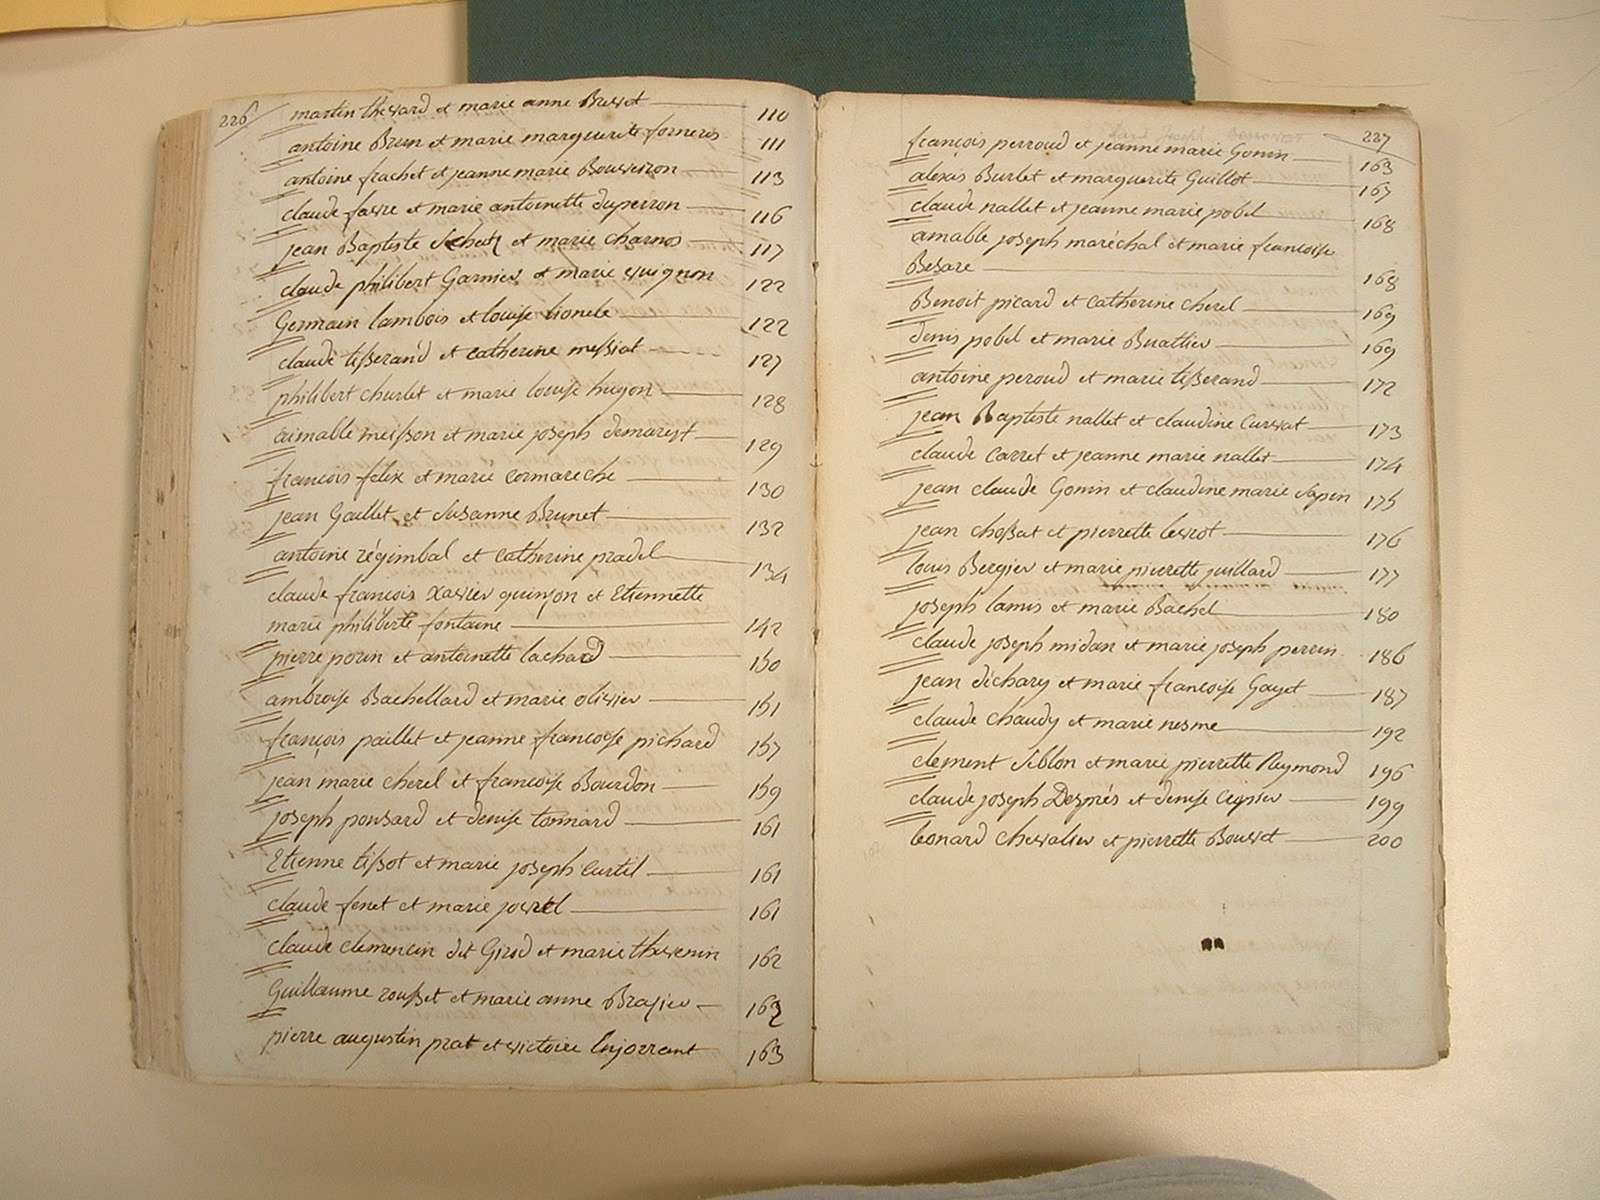 226
martin thevard et marie anne Brevet 110
antoine Brun et marie marguerite forneris 111
antoine frachet et jeanne marie Bouveiron 113
claude favre et marie antoinette duperron 116
jean Baptiste et marie charnos 117
claude philibert Garnier et marie vuignon 122
Germain lambois et louise lionele 122
claude tisserand et catherine messiat 127
philibert churlet et marie louise hugon 128
aimable meisson et marie joseph demarest 129
françois felix et marie cormareche 130
jean Gaillet et Susanne Brunet 132
antoine régimbal et catherine pradel 134
claude françois Xavier quinson et Etiennette
marie philiberte fontaine 142
pierre porin et antoinette lachard 150
ambroise Bachellard et marie olivier 151
françois paillet et jeanne françoise pichard 157
jean marie cherel et françoise Bourdon 159
joseph ponsard et denise tonnard 161
Etienne tissot et marie joseph curtil 161
claude fenet et marie 161
claude clemencin dit Girod et marie thevenin 162
Guillaume rousset et marie anne Brasier 162
pierre augustin prat et victoire Enjorrant 163
227
françois perroud et jeanne marie Gonin 163
alexis Burlet et marguerite Guillot 167
claude nallet et jeanne marie pobel 168
amable joseph maréchal et marie françoise
Besare 168
Benoit picard et catherine cherel 169
denis pobel et marie Buattier 169
antoine peroud et marie tisserand 172
jean Baptiste nallet et claudine Curvat 173
claude carret et jeanne marie nallet 174
jean claude Gonin et claudine marie Sapin 175
jean chossat et pierrette levrot 176
louis Bergier et marie pierrette juillard 177
joseph lamis et marie Bachel 180
claude joseph midan et marie joseph perrin 186
jean dichary et marie françoise Gayet 187
claude chaudy et marie nesme 192
clement Siblon et marie pierrette Reymond 196
claude joseph Desprès et denise 199
leonard chevalier et pierrette Bouvet 200